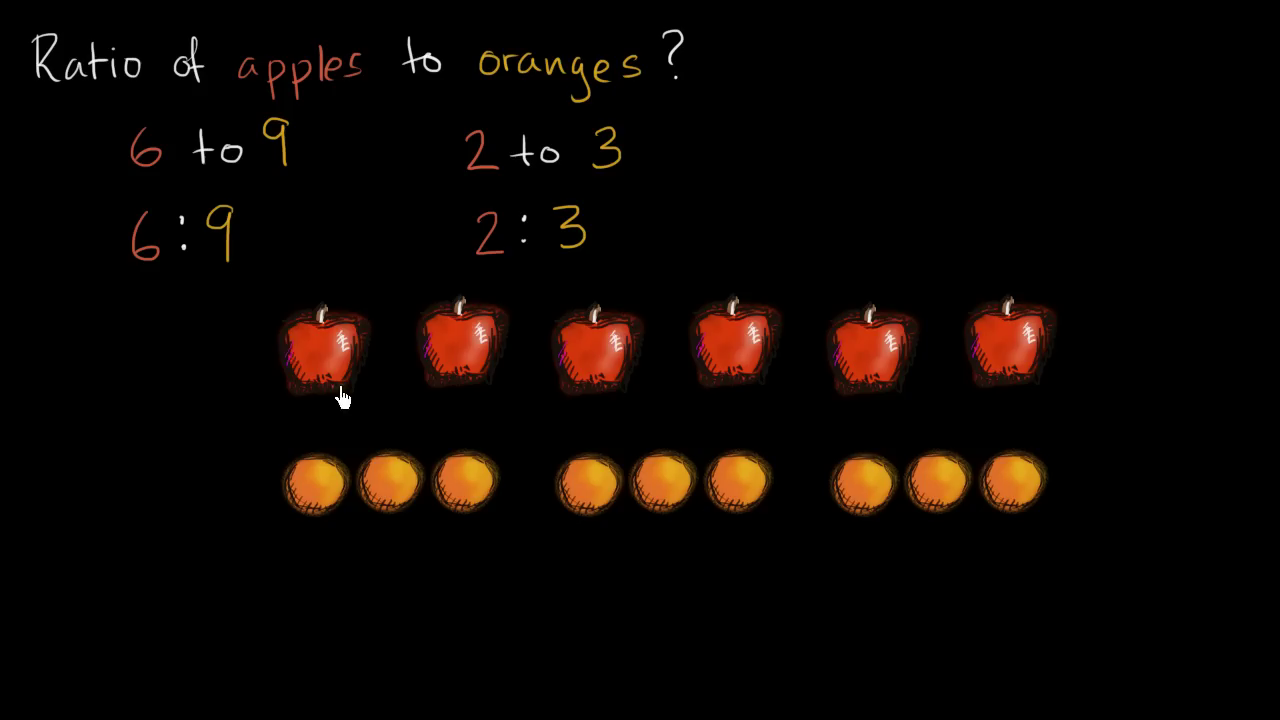 Ratio of apples to oranges?
6 to 9 2 to 3
6:9 2:3